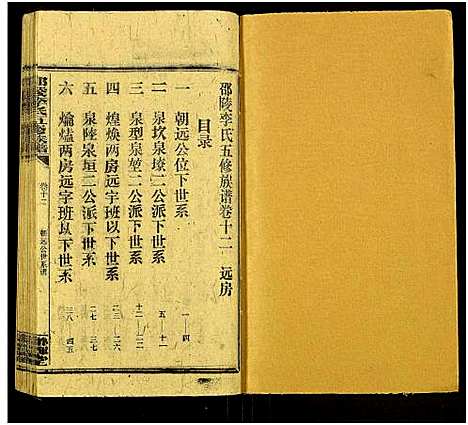 邵陵李氏五修族谱卷十二　远房
目录
一　朝远公位下世系　一—四
二　泉坎泉堎二公派下世系　五—十一
三　泉型泉堃二公派下世系
四　煌焕两房远宇班以下世系　二三—二六
五　泉陸泉垣二公派下世系　二七—三七
六　两房远字班以下世系　三八—四五
邵陵李氏五修族譜　卷十二　朝远公世系